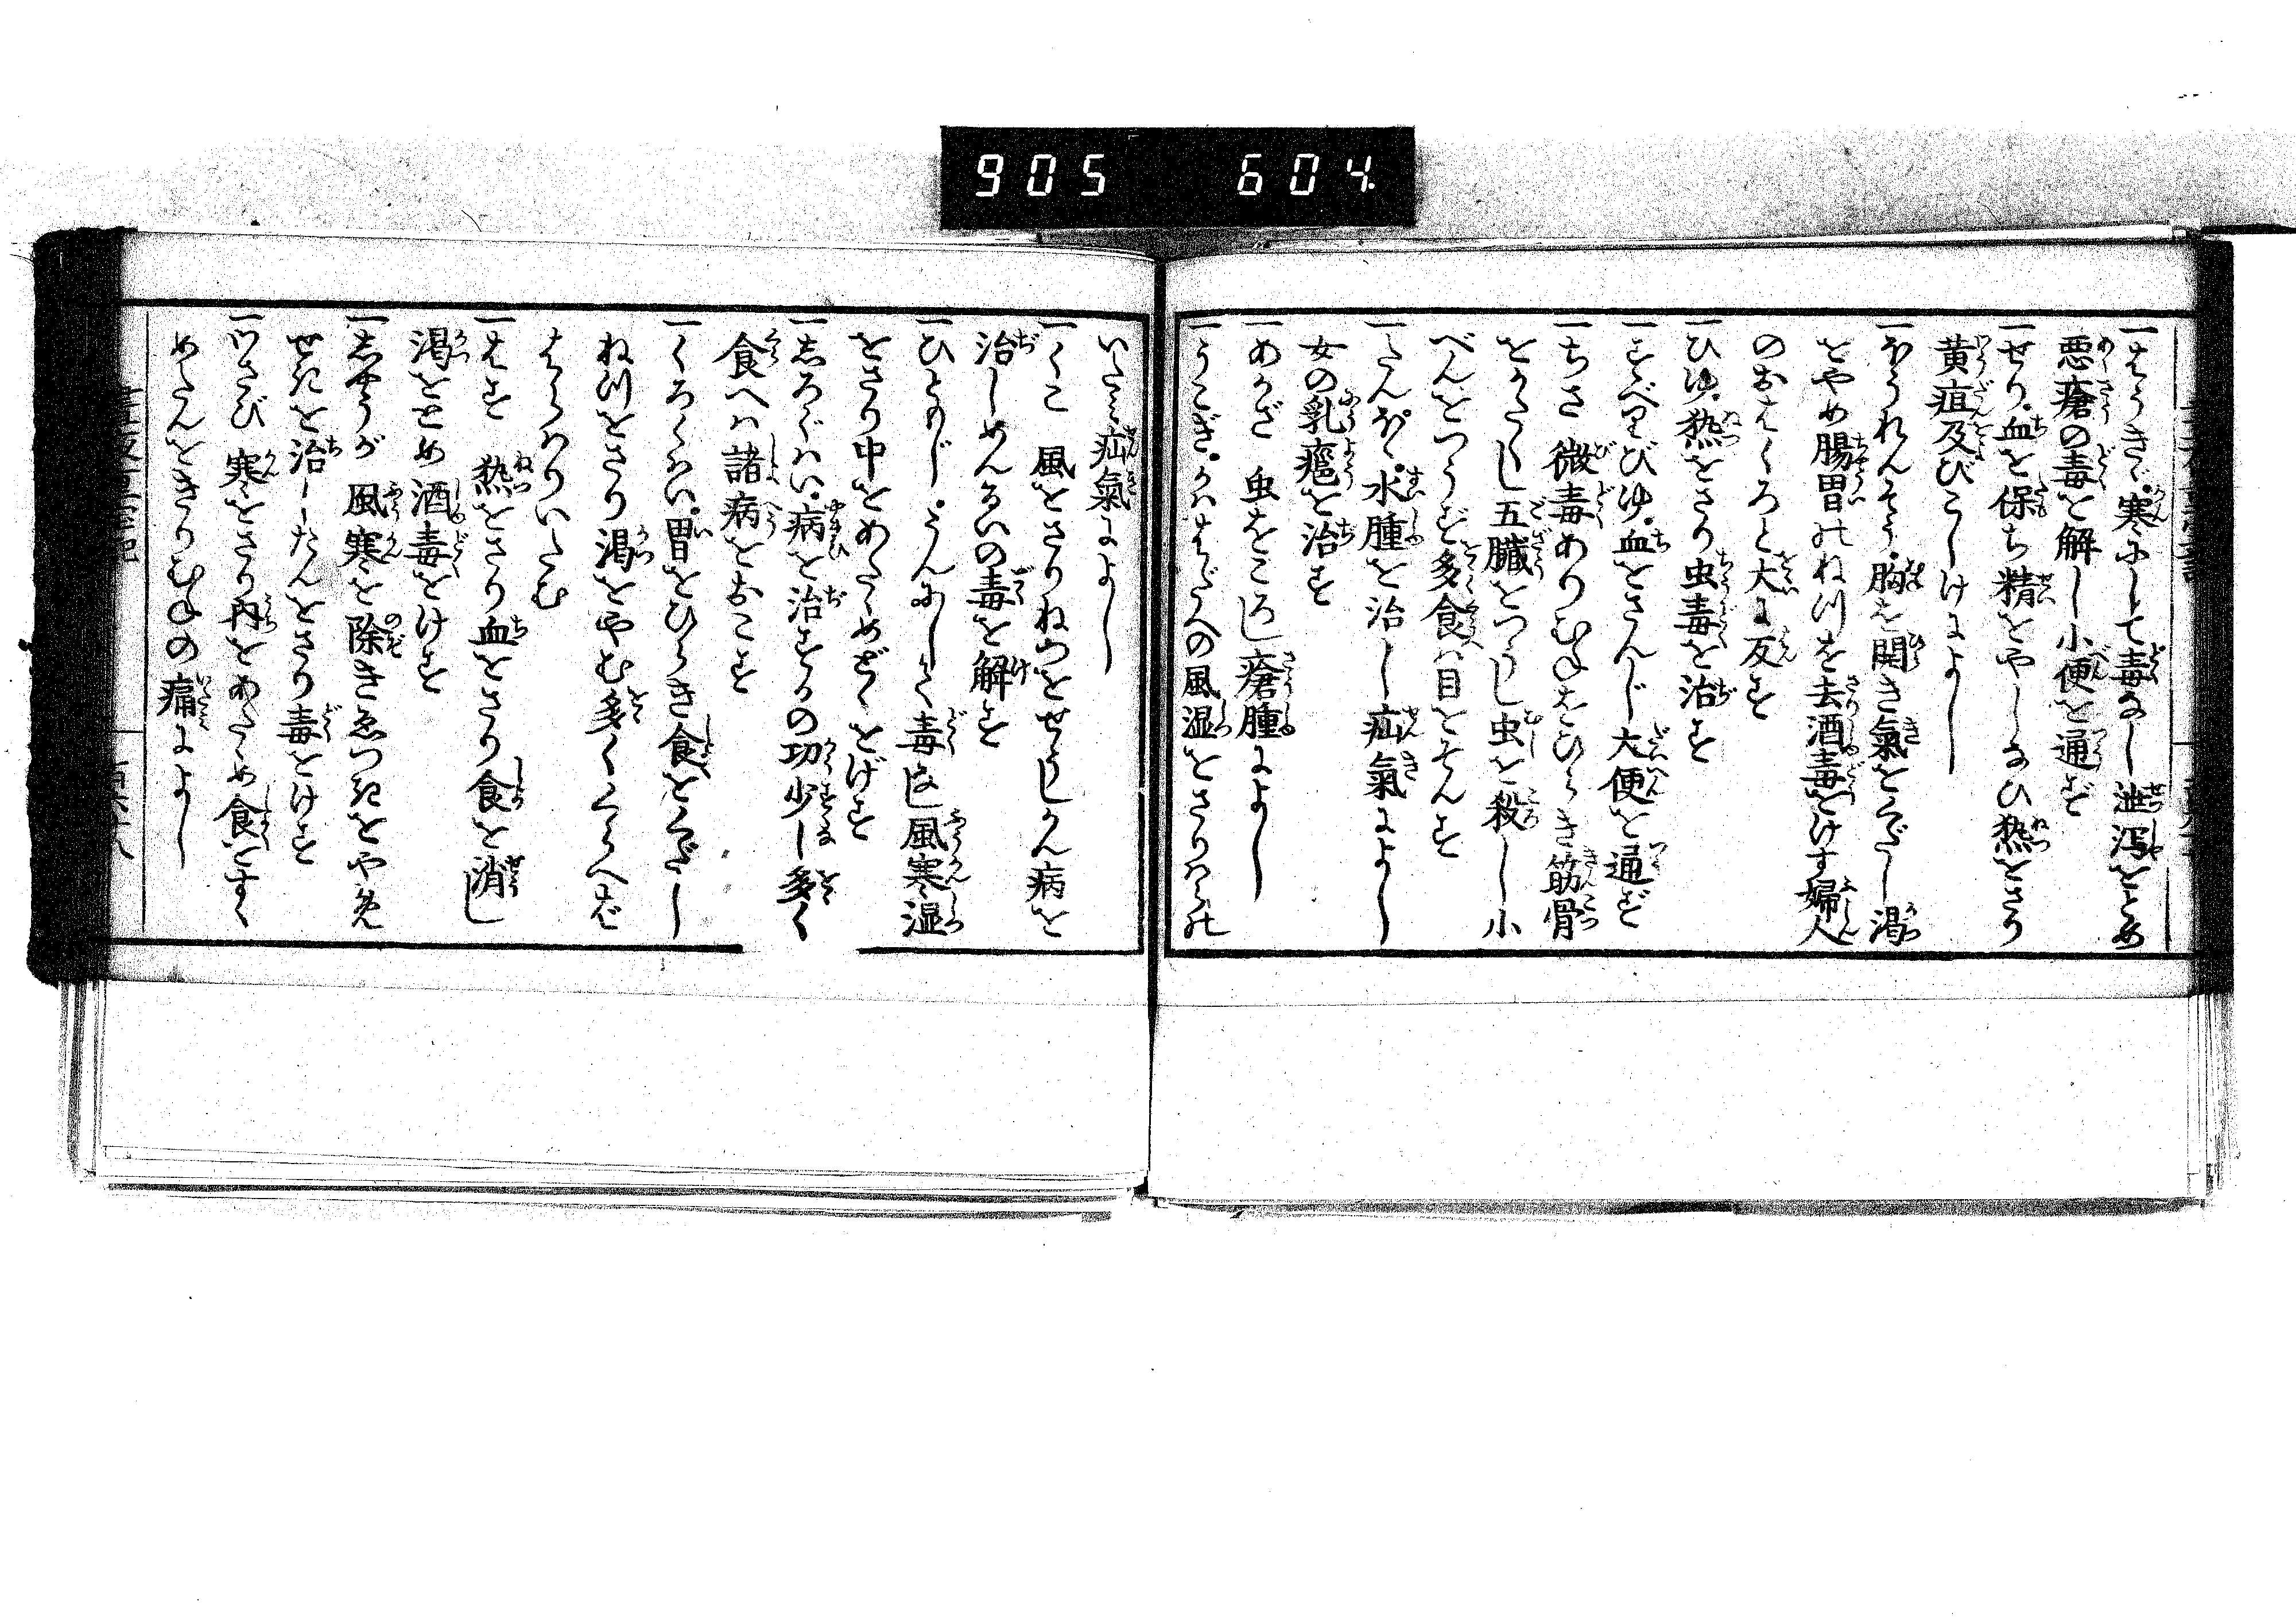 905 604
一はうきゞ・寒にして毒なし泄瀉をとめ
悪瘡の毒を解し小便を通ず
一せり・血を保ち精をやしなひ熱をさり
黄疸及びこしけによし
一ほうれんそう・胸を開き氣をくだし渇
をやめ腸胃のねつを去酒毒をけす婦人
のおはくろと大に反す
一ひゆ・熱をさり虫毒を治す
一すべりびゆ・血をさんじ大便を通ず
一ちさ 微毒ありむねをひらき筋骨
をかたくし五臓をつうじ虫を殺し小
べんをつうず多食ハ目をそんす
一たんぽゝ・水腫を治し疝氣によし
女の乳癰を治す
一あかざ 虫をころし瘡腫によし
一うこぎ・かははだへの風湿をさりはらの
いたミ疝氣によし
一くこ 風をさりねつをせうしかん病を
治しめんるいの毒を解す
一ひともじ・うんあしく毒なし風寒湿
をさり中をあたゝめぜくをげす
一しろぐハい・病を治するの功少し多く
食へハ諸病をおこす
一くろぐハい・胃をひらき食をくだし
ねつをさり渇をやむ多くくらへば
はらはりいたむ
一はす 熱をさり血をさり食を消し
渇をとめ酒毒をけす
一しやうが 風寒を除きゑつきをやめ
せきを治したんをさり毒をけす
一わさび 寒をさり内をあたゝめ食をすゝ
めたんをきりむねの痛によし